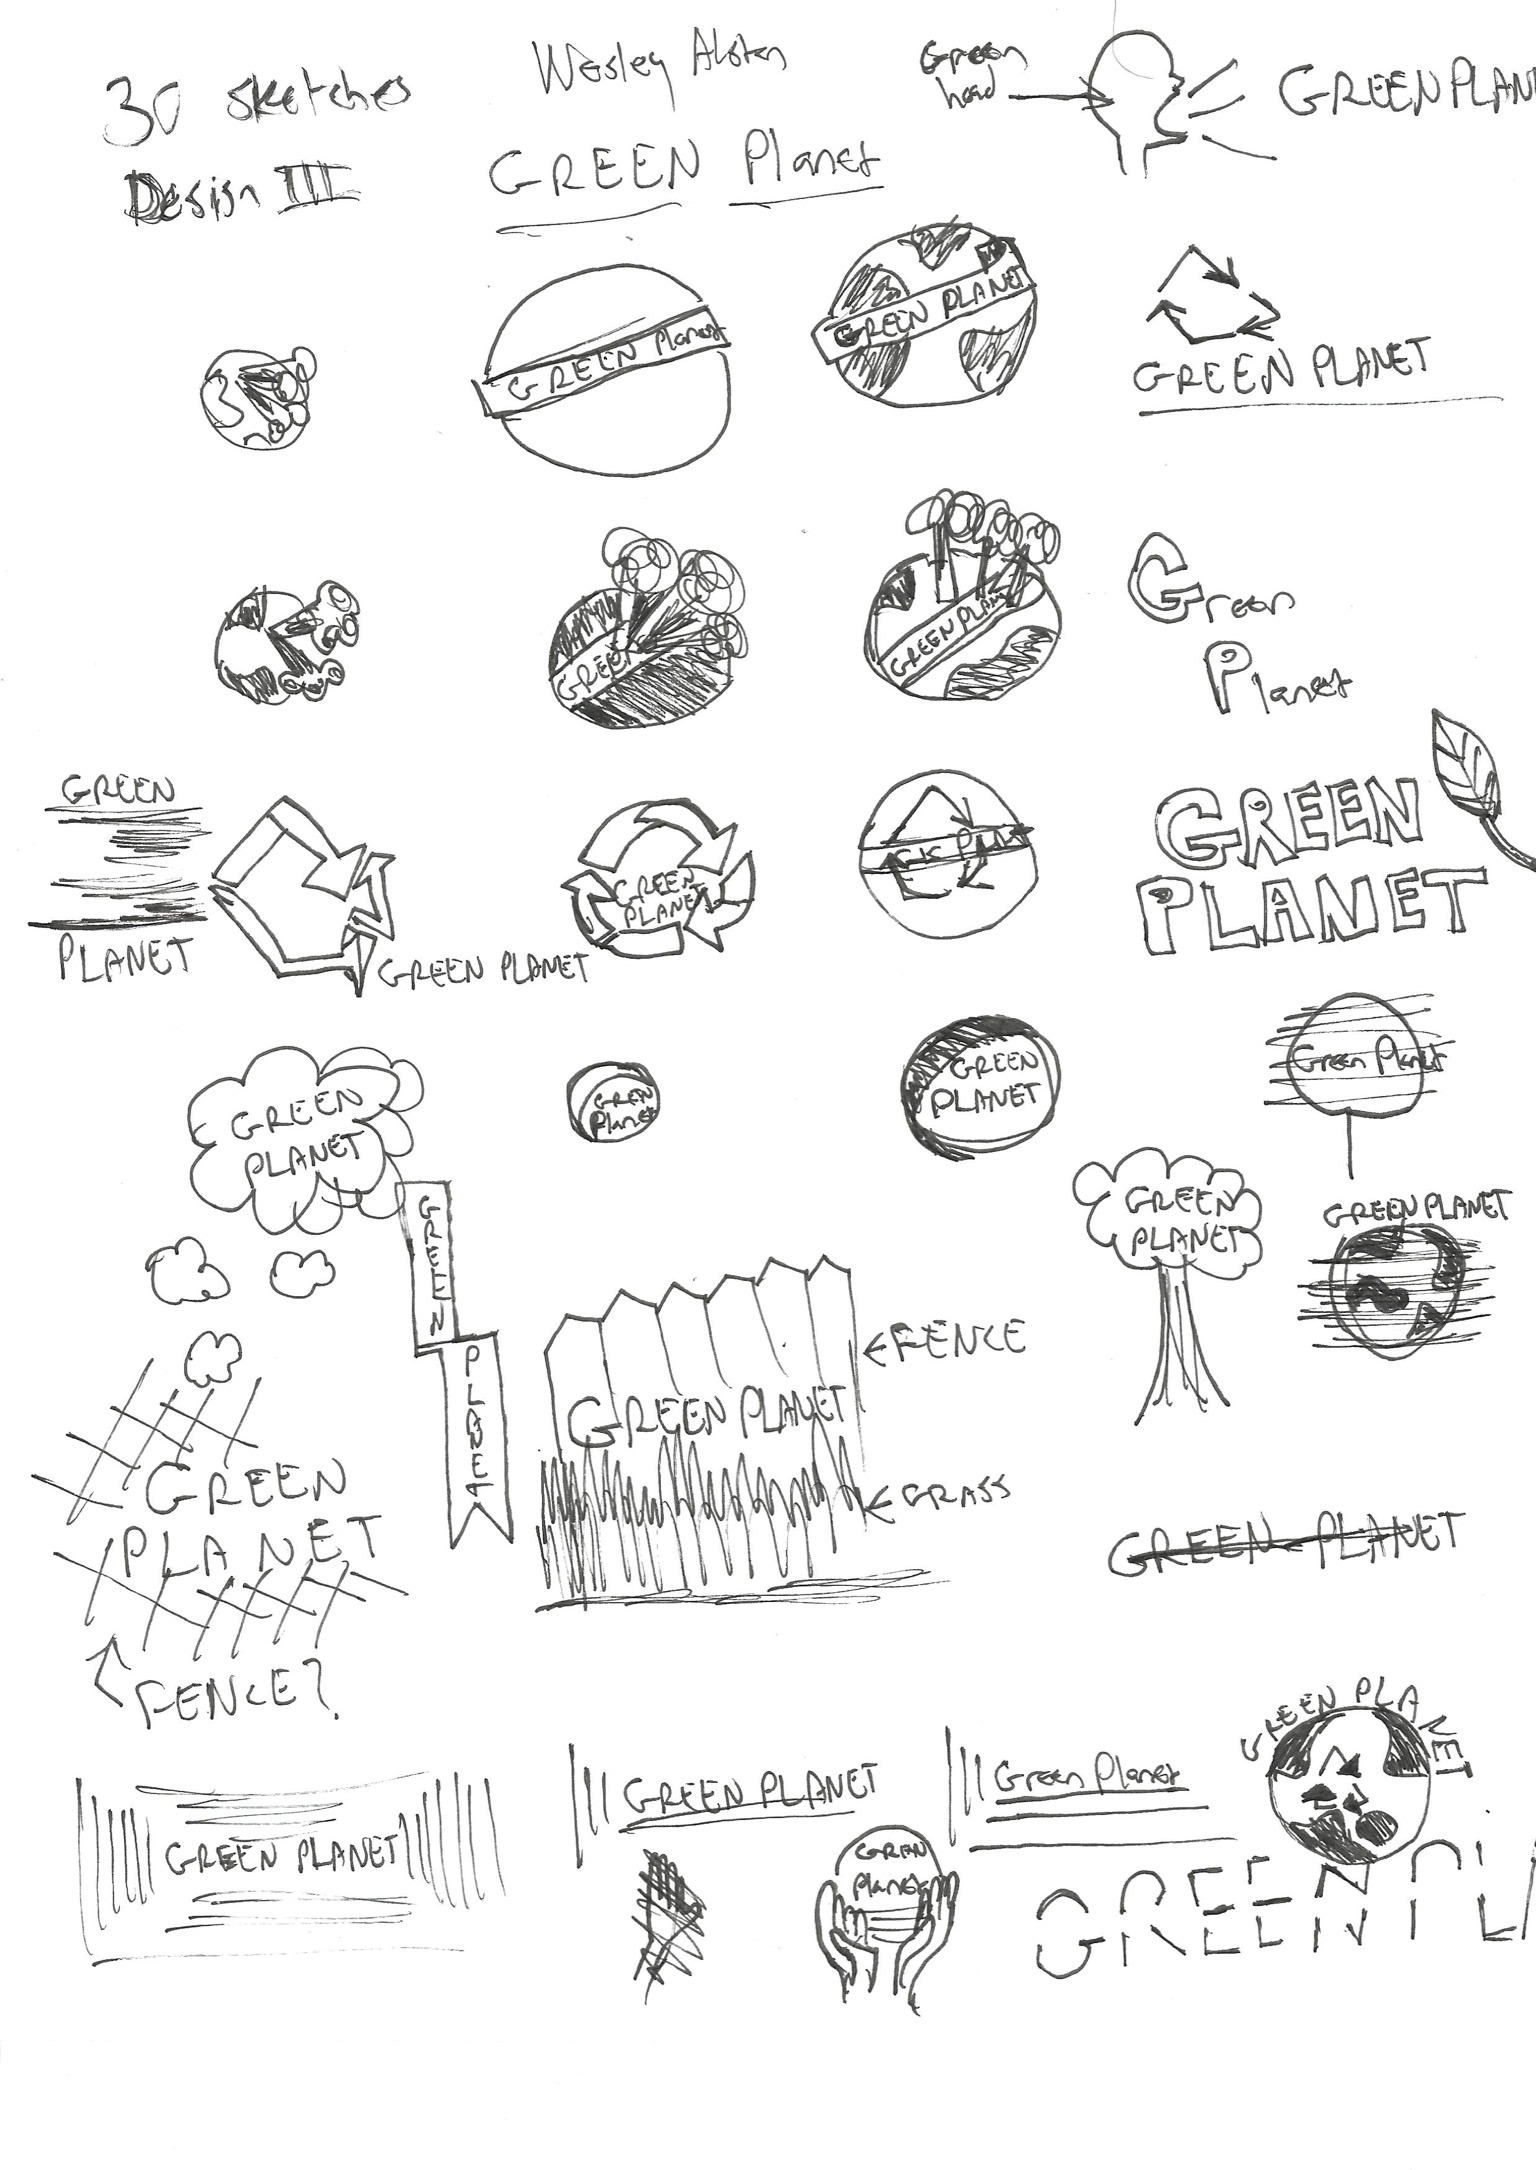 30 sketches
Design III
Wesley Alston
GREEN Planet
Green
head
GREENPLAN
GREEN Planet
GREEN PLANET
GREEN PLANET
GREEN
GREENPLAN
Green
Planet
GREEN
PLANET
GREEN PLANET
GREEN
PLANET
GREEN
PLANET
GREEN
PLANET
GREEN
Planet
GREEN
PLANET
Green Planet
GREEN
PLANET
GREEN
PLANET
GREENPLANET
GREEN PLANET
FENCE
GRASS
GREEN
PLANET
FENCE?
GREEN PLANET
GREEN PLANET
GREEN PLANET
Green Planet
GREEN PLANET
GREEN
Planet
GREEN PLA